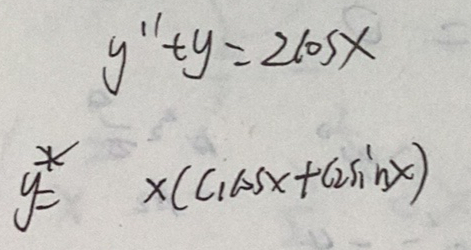 y''+y=2cosx
y*= x(C₁cosx+C₂sinx)